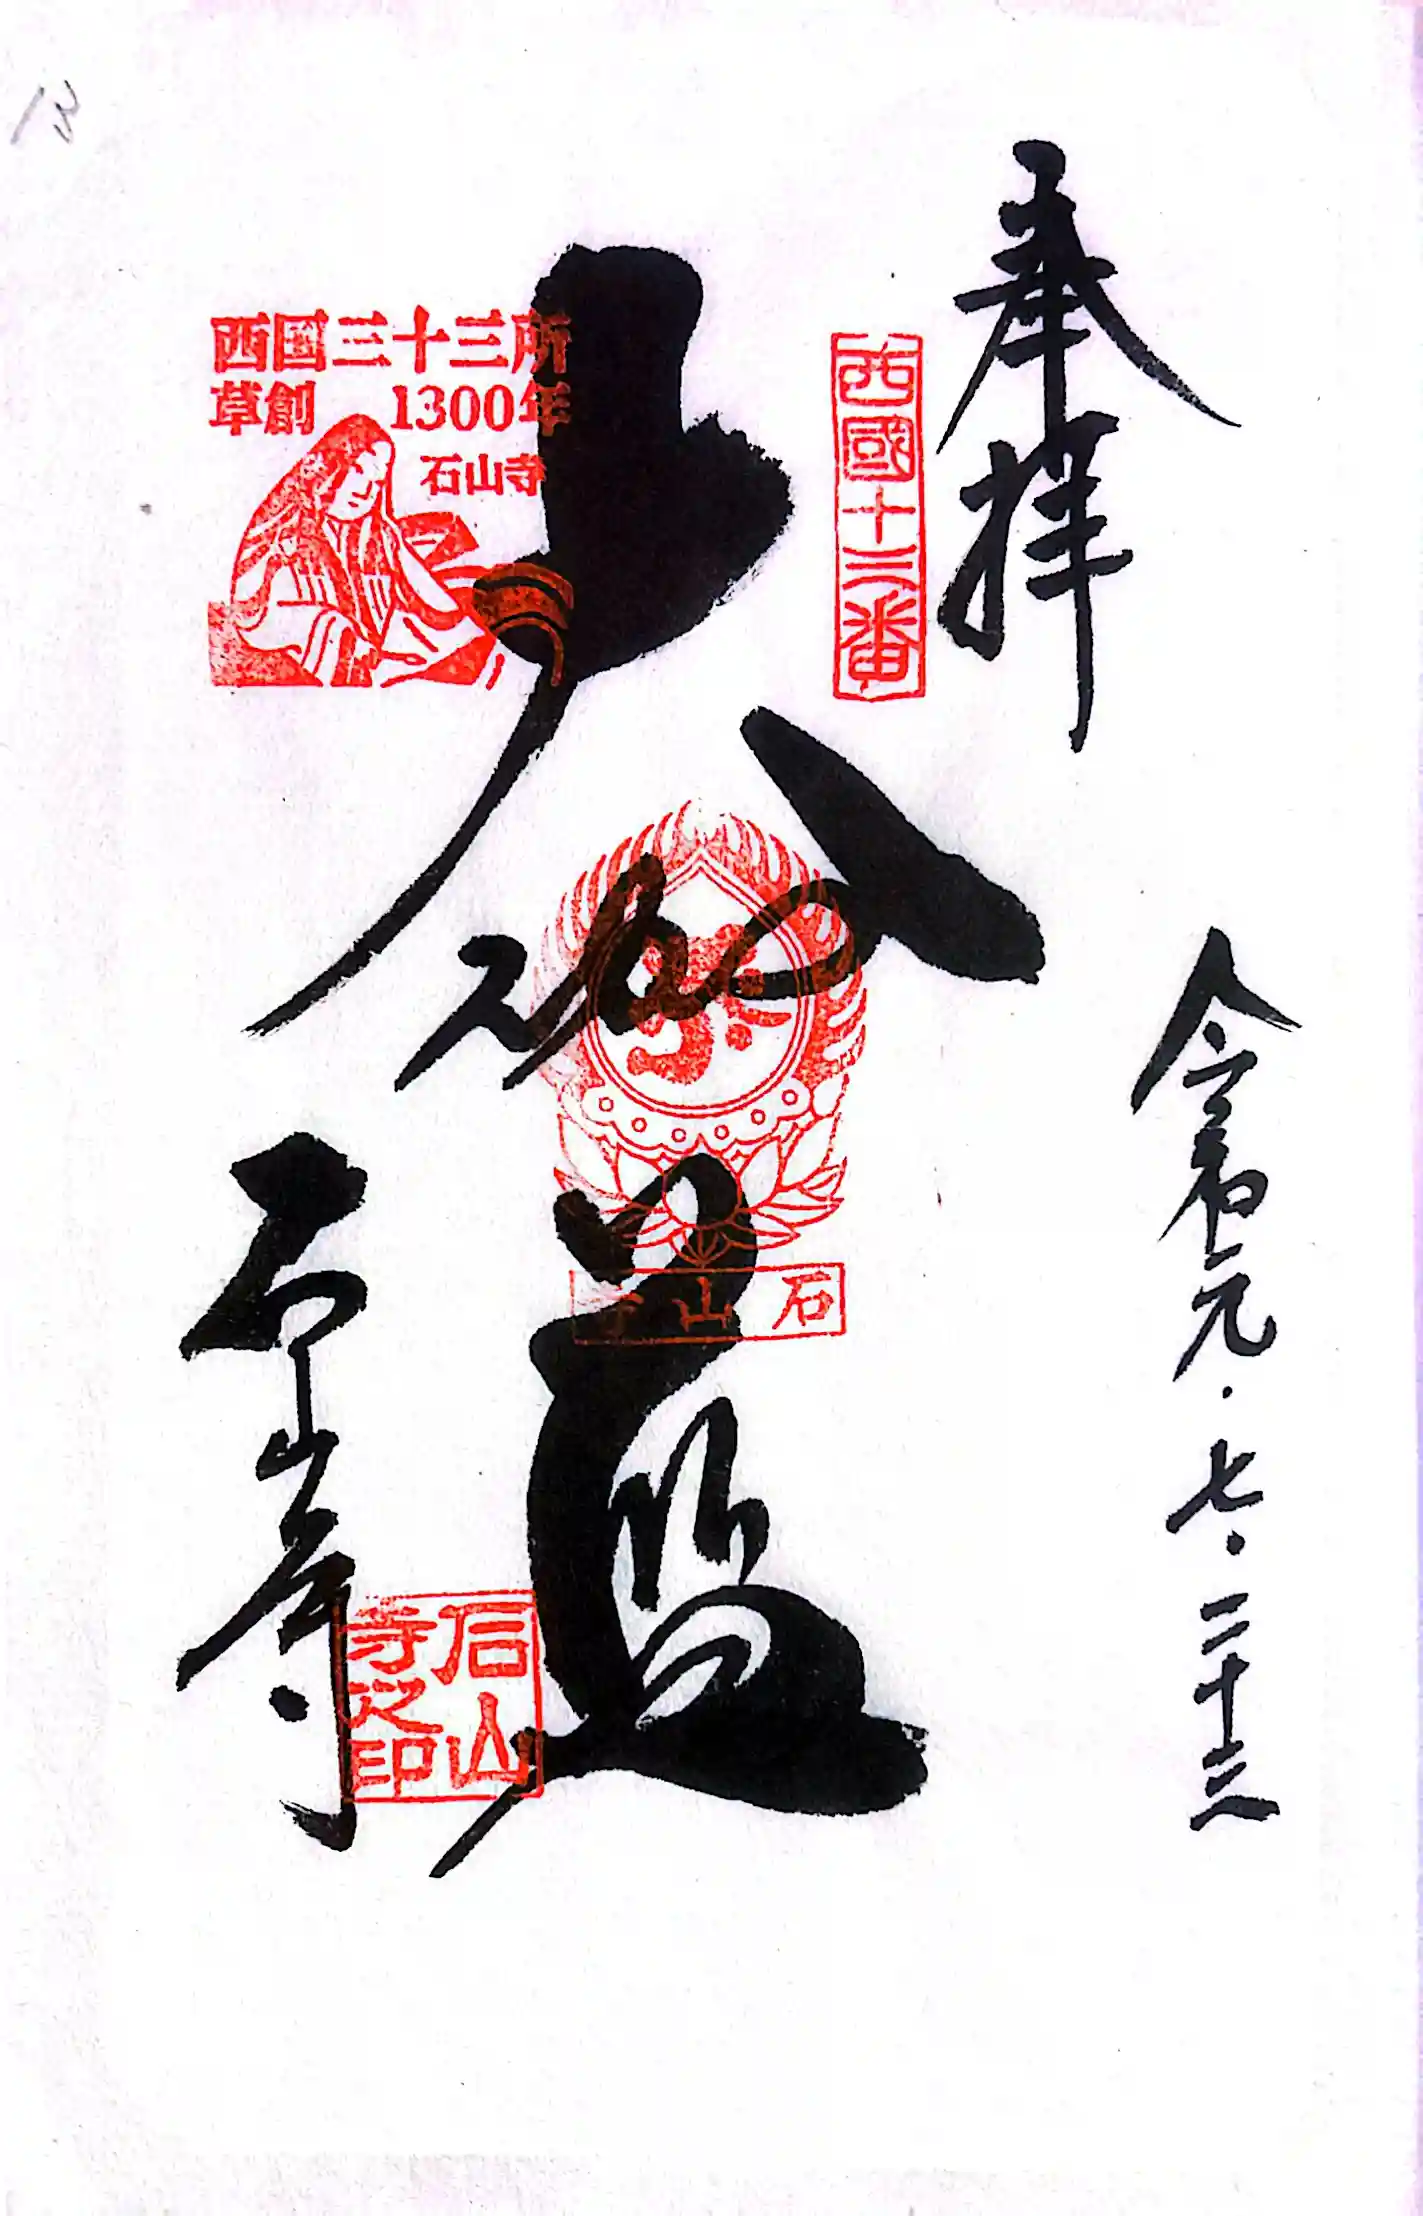 奉拝
令和元・七・二十三
西國十三番
大伽藍
石山寺
西国三十三所
草創 1300年
石山寺
石山寺
石山寺之印
13